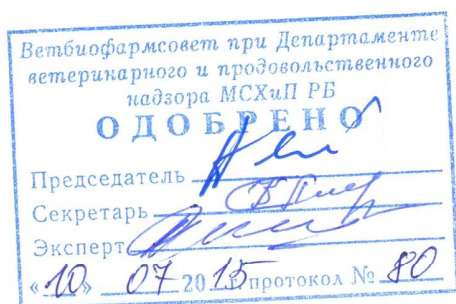 Ветбиофармсовет при Департаменте
ветеринарного и продовольственного
надзора МСХиП РБ
ОДОБРЕНО
Председатель
Секретарь
Эксперт
«10» 07 2015 протокол № 80